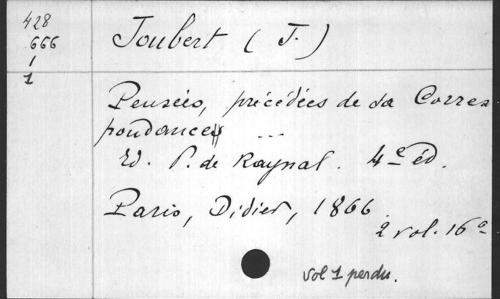 428
666
1
1
Joubert (J.)
Pensées, précédées de sa Corres
pondance ...
Ed. P. de Raynal. 4e éd.
Paris, Didier, 1866
2 vol. 16o
vol 1 perdu.